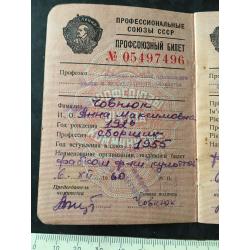 ПРОФЕССИОНАЛЬНЫЕ
СОЮЗЫ СССР
ПРОФСОЮЗНЫЙ БИЛЕТ
№ 05497496
Профсоюз
Фамилия Човнюк
И., о. Анна Максимовна
Год рождения
Профессия сборщик
Год вступления в союз 1955
Наименование организации, выдавшей билет
фабком ф-ки
6. XII 60
Председатель
комитета
Личная подпись
Човнюк